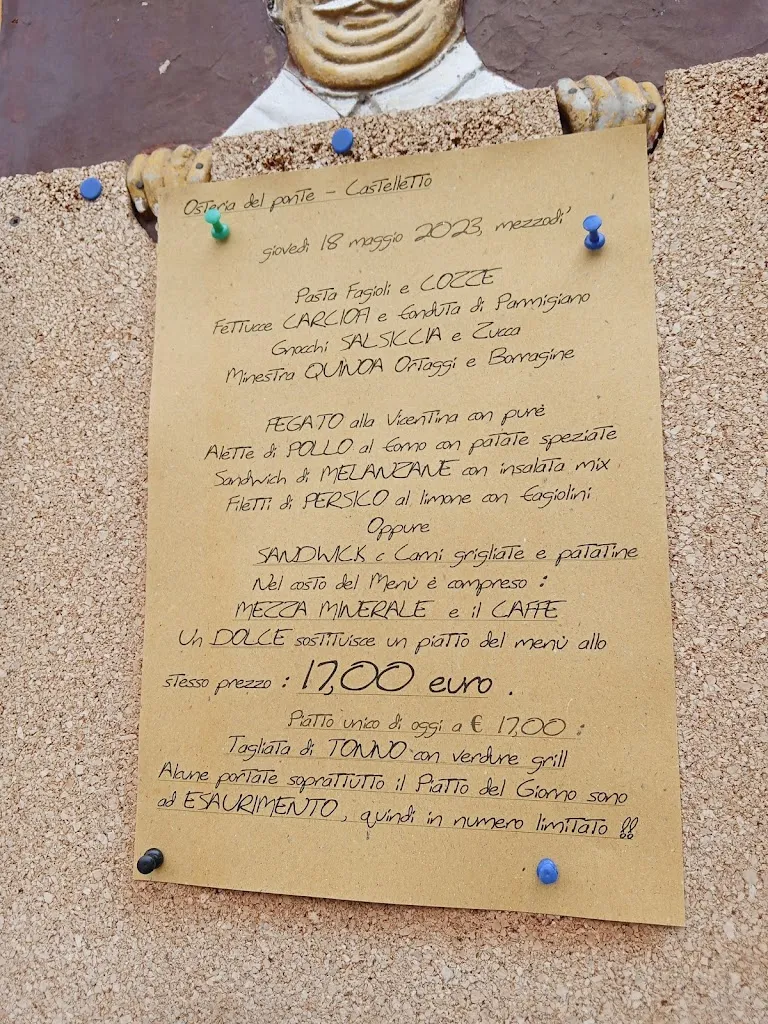 Osteria del ponte - Castelletto
giovedì 18 maggio 2023, mezzodi'
Pasta Fagioli e COZZE
Fettucce CARCIOFI e fonduta di Parmigiano
Gnocchi SALSICCIA e Zucca
Minestra QUINOA Ortaggi e Borragine
FEGATO alla Vicentina con purè
Alette di POLLO al forno con patate speziate
Sandwich di MELANZANE con insalata mix
Filetti di PERSICO al limone con fagiolini
Oppure
SANDWICK c Carni grigliate e patatine
Nel costo del Menù è compreso :
MEZZA MINERALE e il CAFFE
Un DOLCE sostituisce un piatto del menù allo
stesso prezzo : 17,00 euro .
Piatto unico di oggi a € 17,00 :
Tagliata di TONNO con verdure grill
Alcune portate soprattutto il Piatto del Giorno sono
ad ESAURIMENTO, quindi in numero limitato !!